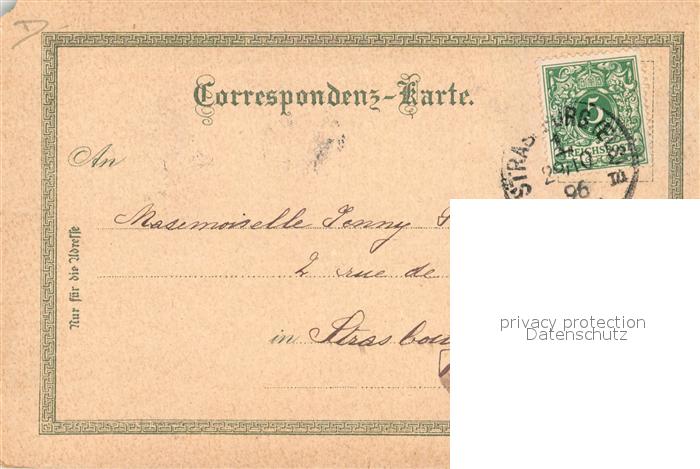 Correspondenz-Karte.
5
REICHSPOST
STRASSBURG (ELS
96
An
Mademoiselle Jenny
2 rue de
in Strasbou
Nur für die Adresse
privacy protection
Datenschutz